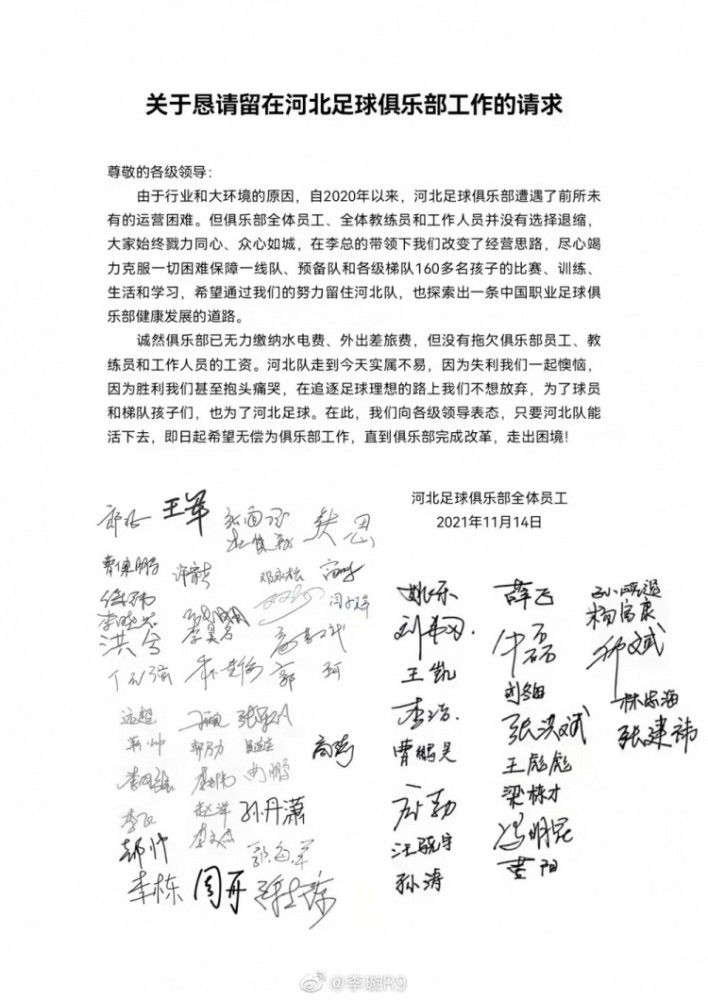 关于恳请留在河北足球俱乐部工作的请求
尊敬的各级领导：
由于行业和大环境的原因，自2020年以来，河北足球俱乐部遭遇了前所未
有的运营困难。但俱乐部全体员工、全体教练员和工作人员并没有选择退缩，
大家始终戮力同心、众心如城，在李总的带领下我们改变了经营思路，尽心竭
力克服一切困难保障一线队、预备队和各级梯队160多名孩子的比赛、训练、
生活和学习，希望通过我们的努力留住河北队，也探索出一条中国职业足球俱
乐部健康发展的道路。
诚然俱乐部已无力缴纳水电费、外出差旅费，但没有拖欠俱乐部员工、教
练员和工作人员的工资。河北队走到今天实属不易，因为失利我们一起懊恼，
因为胜利我们甚至抱头痛哭，在追逐足球理想的路上我们不想放弃，为了球员
和梯队孩子们，也为了河北足球。在此，我们向各级领导表态，只要河北队能
活下去，即日起希望无偿为俱乐部工作，直到俱乐部完成改革，走出困境！
河北足球俱乐部全体员工
2021年11月14日
王军
姚乐
薛飞
杨富康
王凯
李浩
张洪斌
林忠海
张建祎
曹鹏昊
王彪彪
梁栋才
冯明昆
汪晓宇
孙涛
黄阳
远超
孙丹潇
李栋
周开
@李璇R9